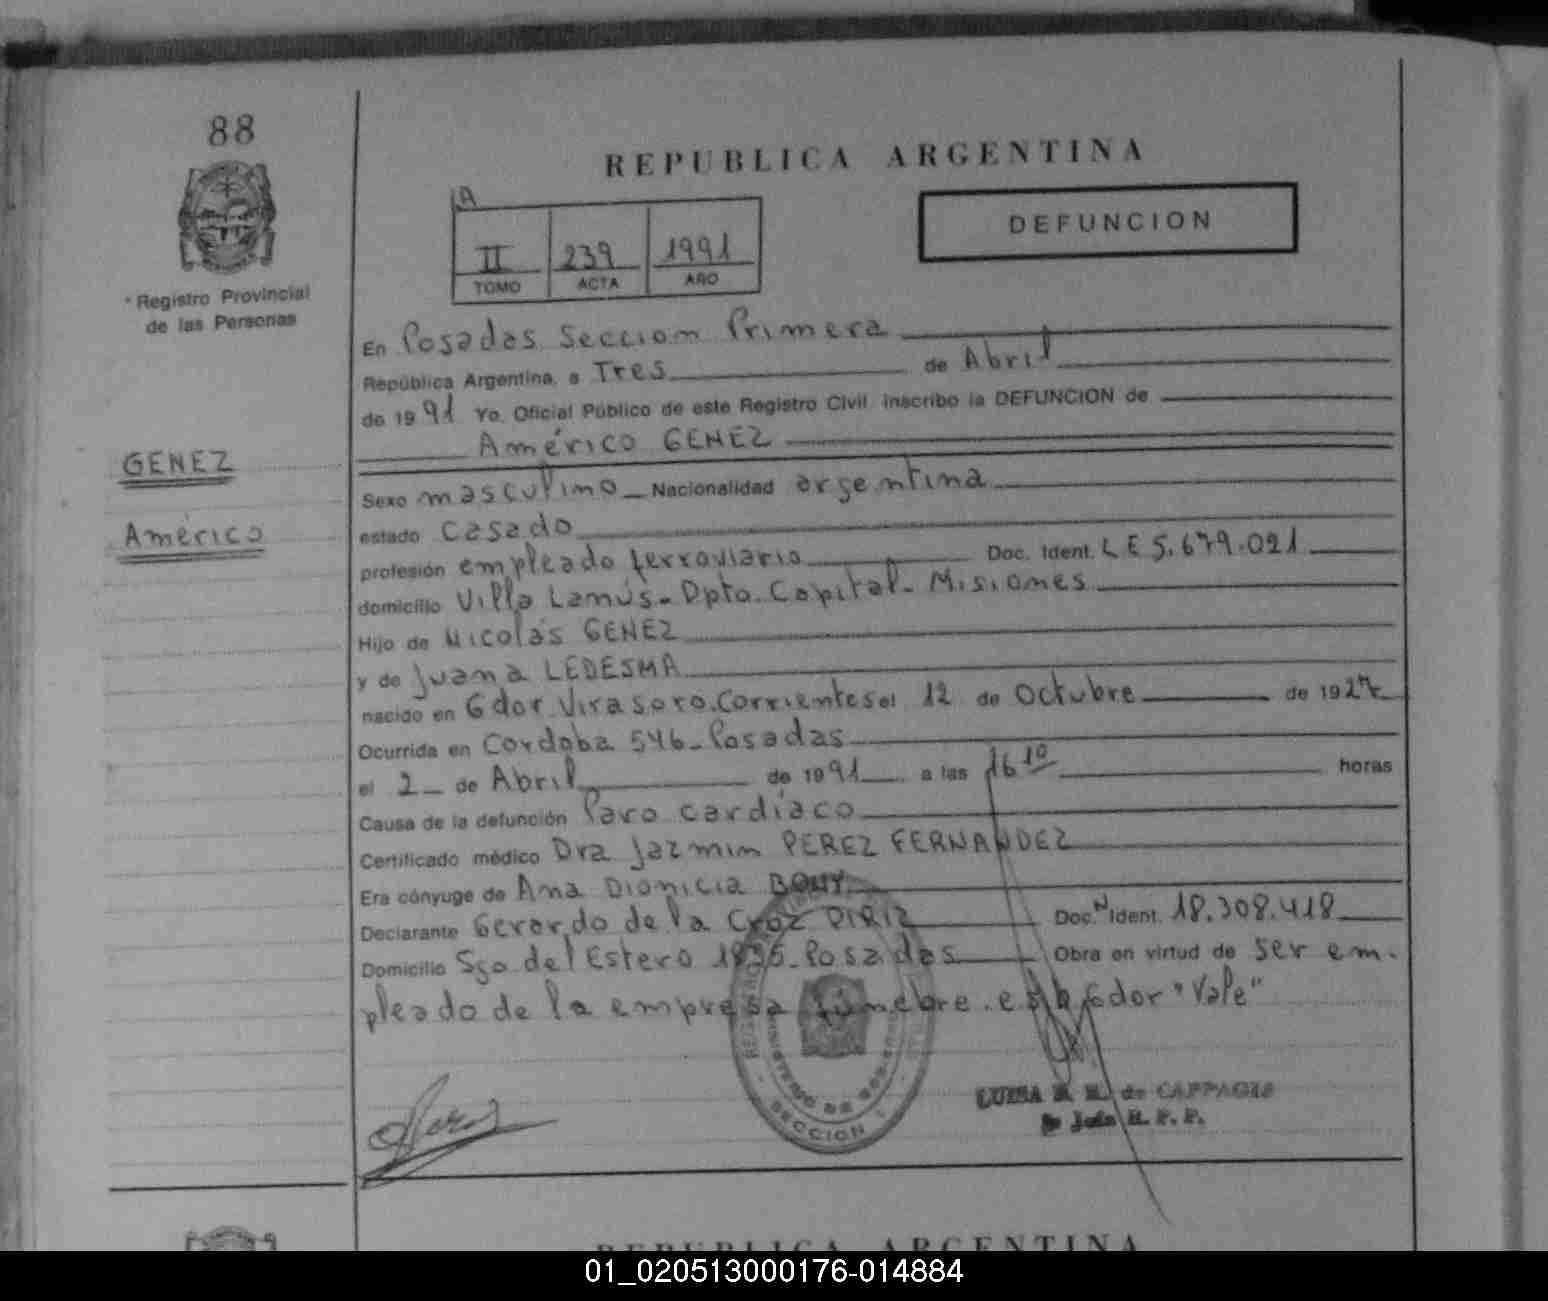 88
REPUBLICA ARGENTINA
A
II 239 1991
TOMO ACTA AÑO
DEFUNCION
Registro Provincial
de las Personas
En Posadas Seccion Primera
República Argentina, a Tres de Abril
de 1991 Yo, Oficial Público de este Registro Civil inscribo la DEFUNCION de
Américo GENEZ
GENEZ
Américo
Sexo masculino Nacionalidad argentina
estado Casado
profesión empleado ferroviario Doc. Ident. LE 5.679.021
domicilio Villa Lanús - Dpto. Capital - Misiones
Hijo de Nicolás GENEZ
y de Juana LEDESMA
nacido en Gdor. Virasoro. Corrientes el 12 de Octubre de 192
Ocurrida en Cordoba 546 - Posadas
el 2 de Abril de 1991 a las 16 10 horas
Causa de la defunción Paro cardíaco
Certificado médico Dra Jazmin PEREZ FERNANDEZ
Era cónyuge de Ana Dionicia
Declarante Gerardo de la Cruz PIRIZ Doc. N Ident. 18.308.418
Domicilio Sgo. del Estero - Posadas Obra en virtud de ser em-
pleado de la empresa fúnebre. "Vale"
SECCION
LUISA de
REPUBLICA ARGENTINA
01_020513000176-014884